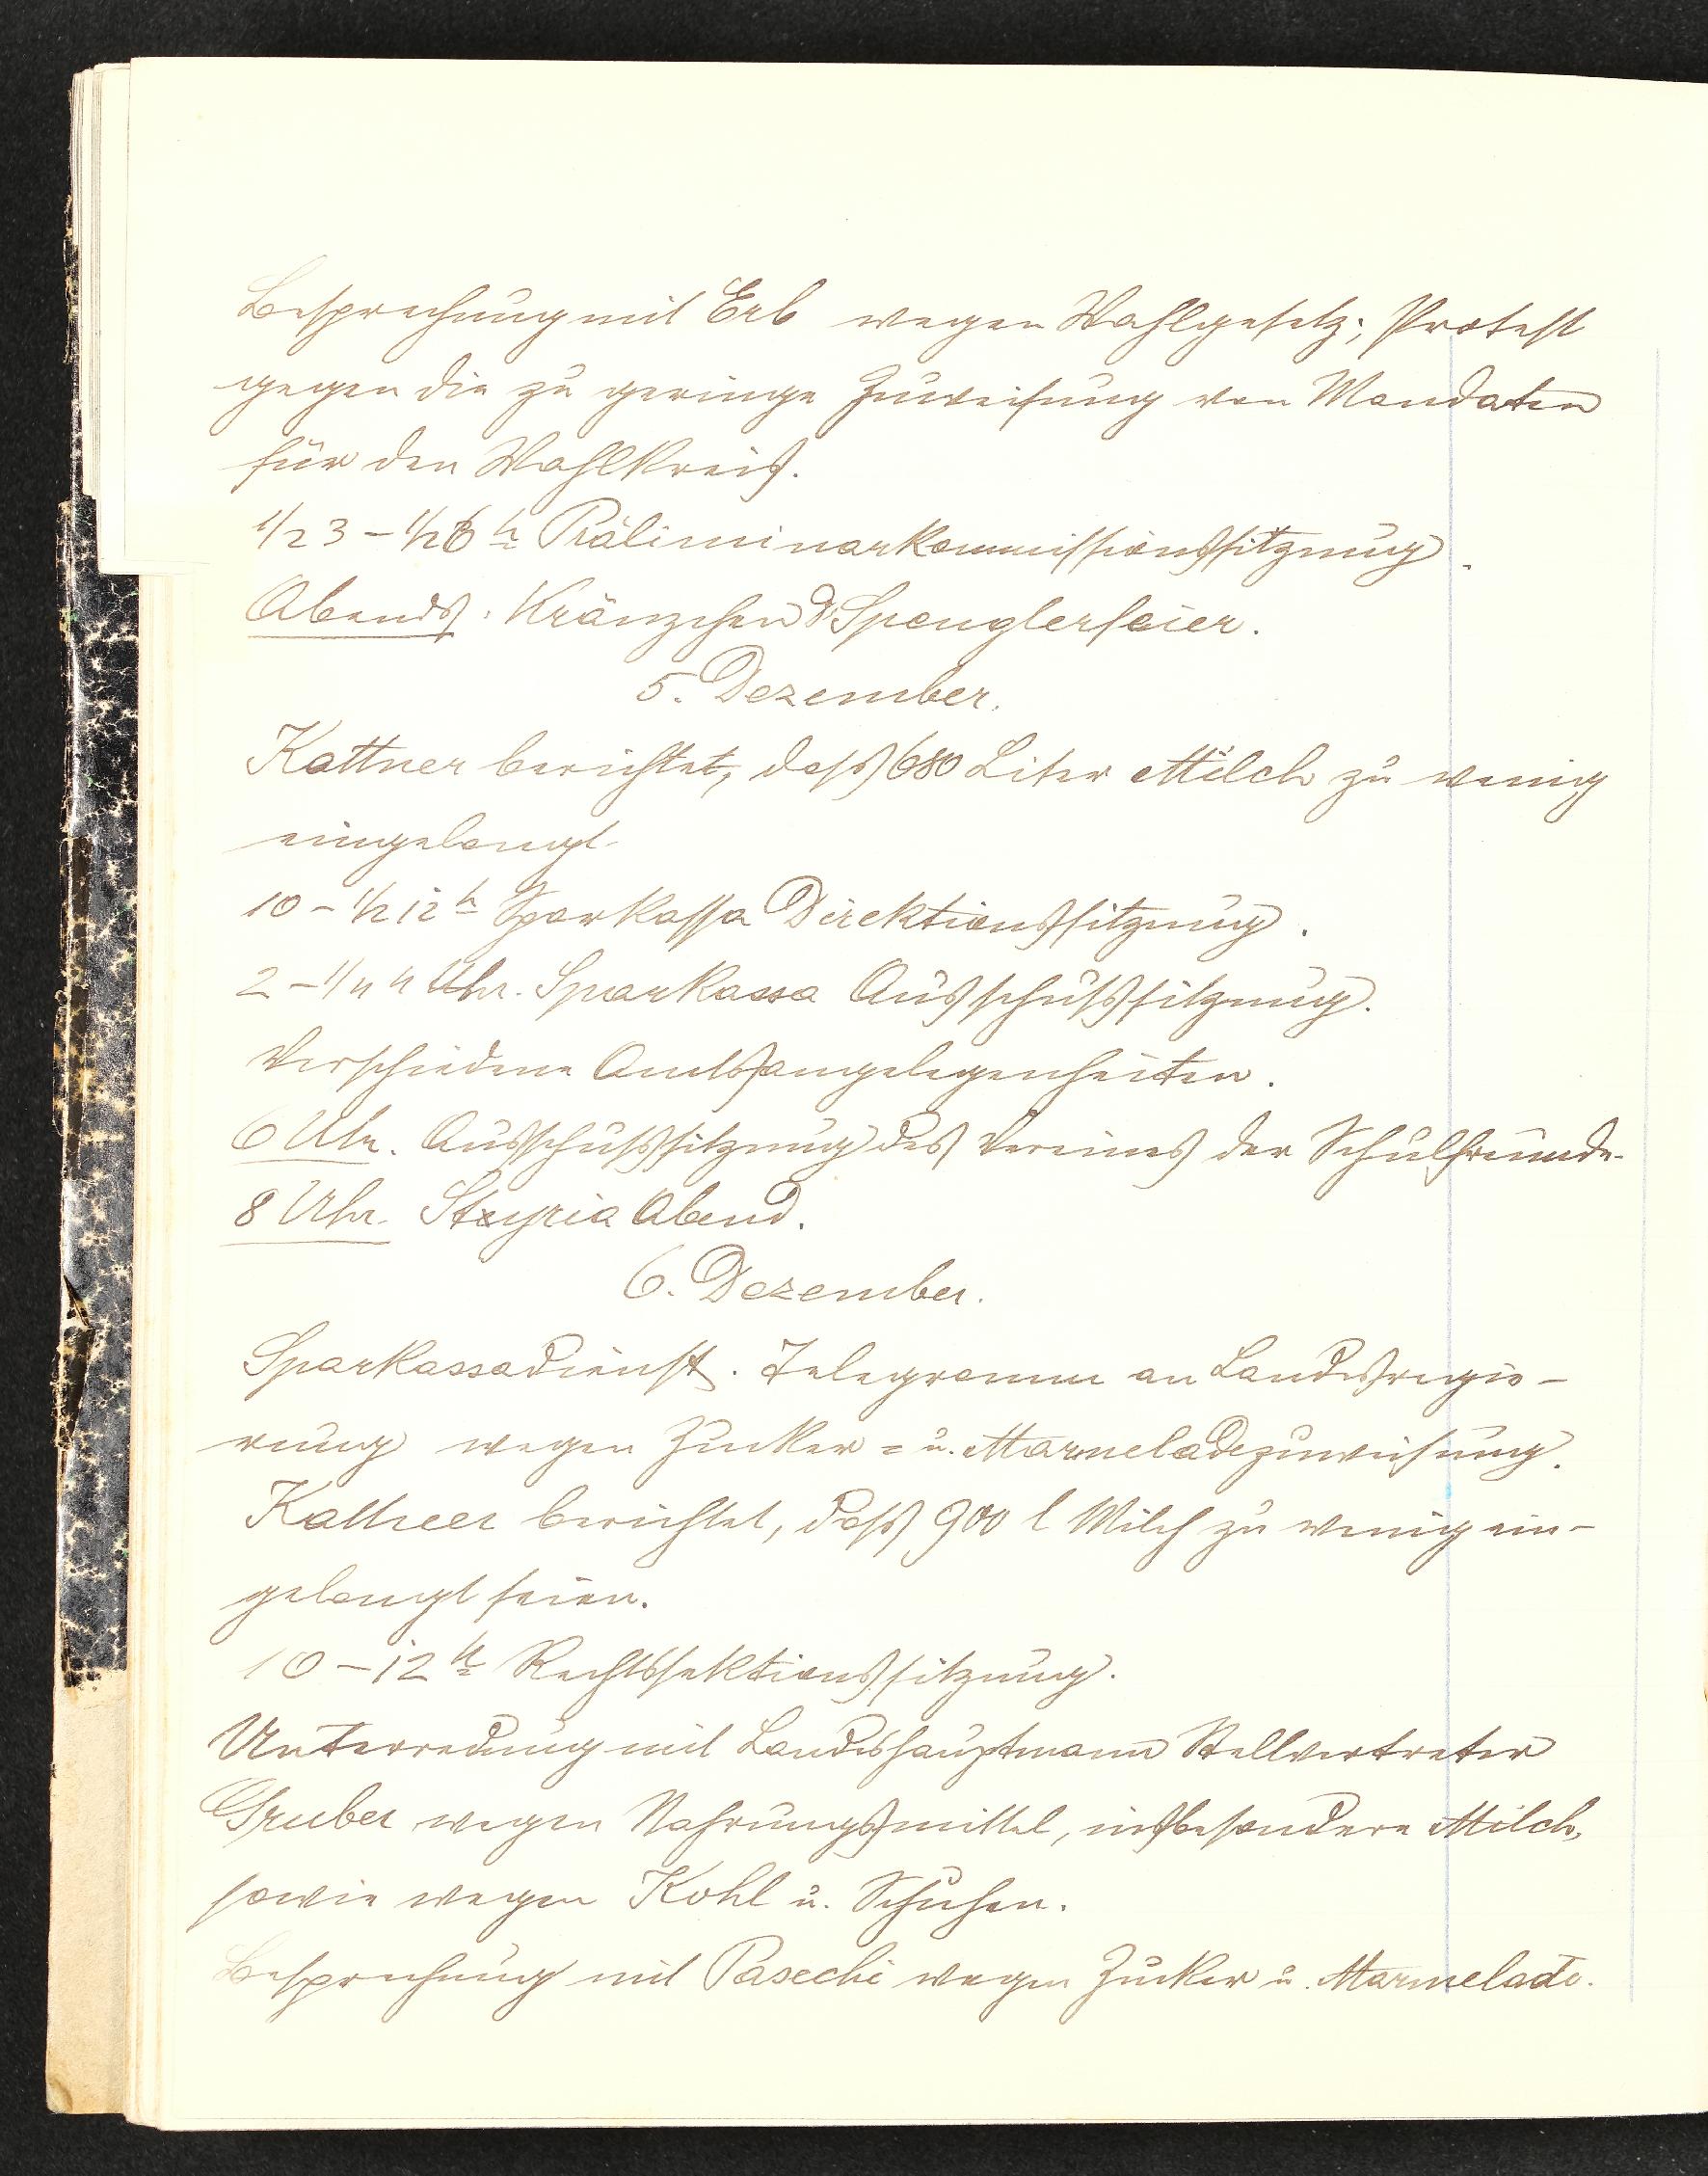 Besprechung mit Erb wegen Wahlgesetz; Protest
gegen die zu geringe Zuweisung von Mandaten
für den Wahlkreis.
1/2 3 - 1/2 6 h Präliminarkommissionssitzung.
Abends: Kränzchen d. Spenglerfeier.
5. Dezember.
Kattner berichtet, dass 680 Liter Milch zu wenig
eingelangt.
10 - 1/2 12 h Sparkassa Direktionssitzung.
2 - 1/4 4 Uhr. Sparkassa Ausschusssitzung.
Verschiedene Amtsangelegenheiten.
6 Uhr. Ausschusssitzung des Vereines der Schulfreunde.
8 Uhr. Styria Abend.
6. Dezember.
Sparkassadienst. Telegramm an Landesregie-
rung wegen Zucker- u. Marmeladezuweisung.
Kattner berichtet, dass 900 l Milch zu wenig ein-
gelangt seien.
10 - 12 h Rechtssektionssitzung.
Unterredung mit Landeshauptmann Stellvertreter
Gruber wegen Nahrungsmittel, insbesondere Milch,
sowie wegen Kohl u. Schuhen.
Besprechung mit wegen Zucker u. Marmelade.